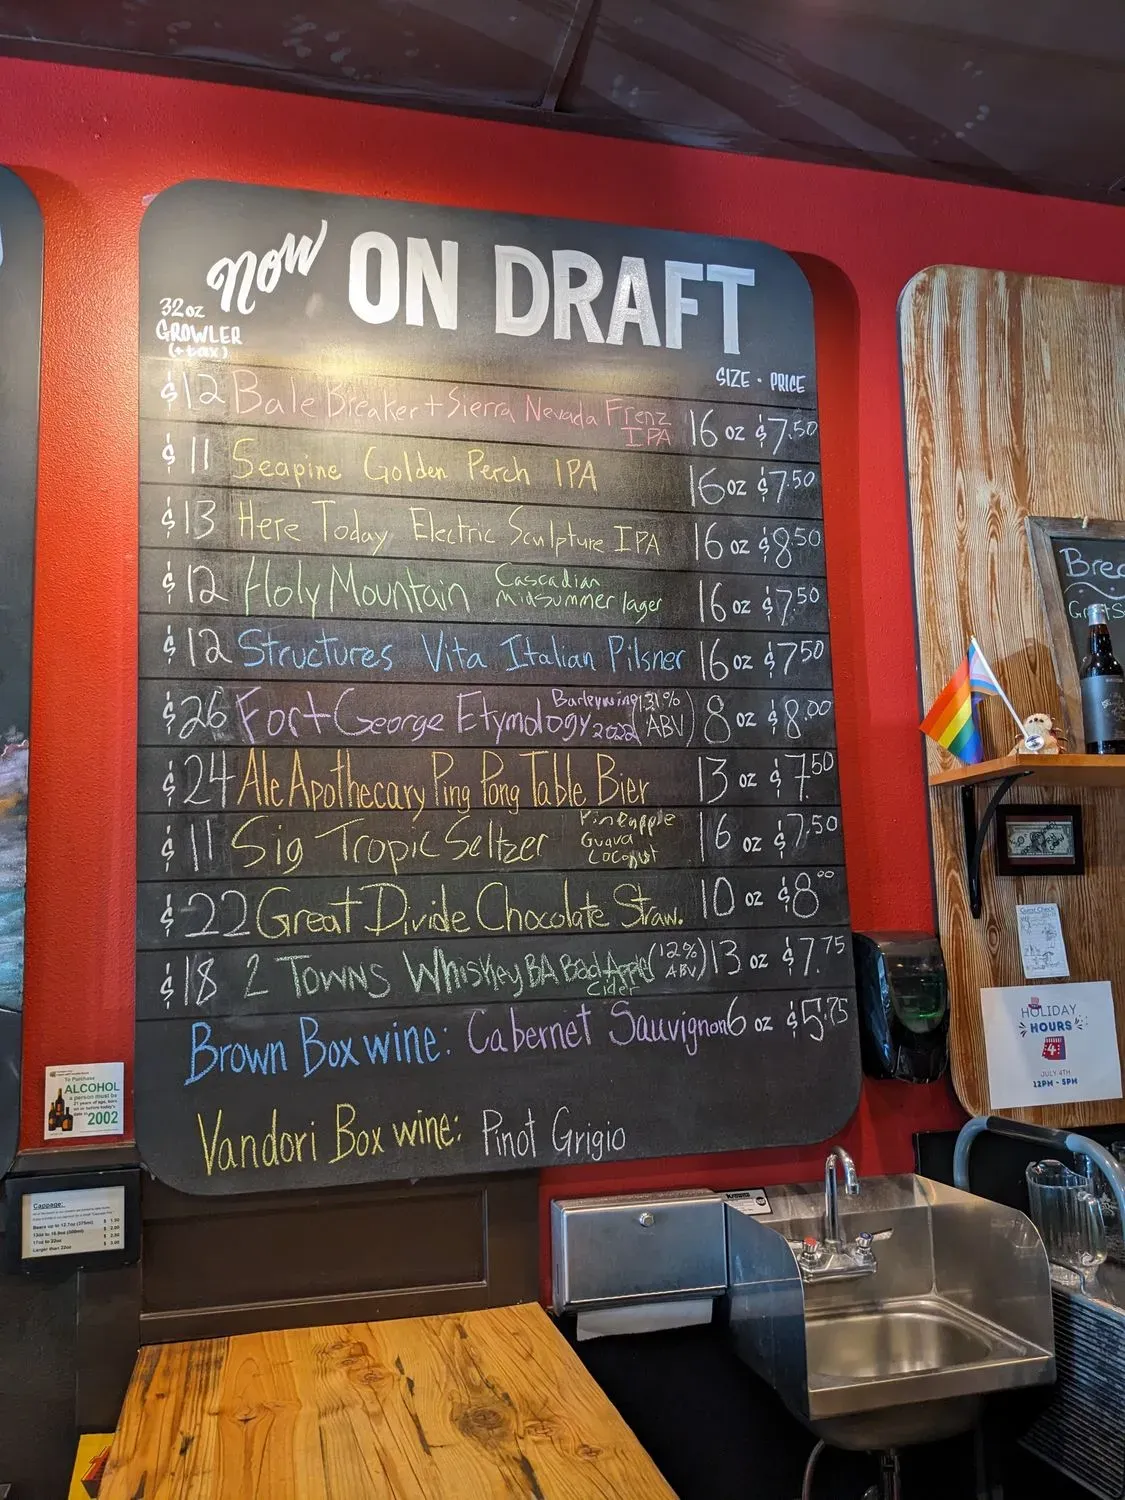 now ON DRAFT
32oz
GROWLER
(+tax)
SIZE · PRICE
$12 Bale Breaker + Sierra Nevada Frenz IPA 16 oz $7.50
$11 Seapine Golden Perch IPA 16 oz $7.50
$13 Here Today Electric Sculpture IPA 16 oz $8.50
$12 Holy Mountain Cascadian Midsummer lager 16 oz $7.50
$12 Structures Vita Italian Pilsner 16 oz $7.50
$26 Fort George Etymology Barleywine 2022 ABV) 8 oz $8.00
$24 Ale Apothecary Ping Pong Table Bier 13 oz $7.50
$11 Sig Tropic Seltzer Pineapple Guava Coconut 16 oz $7.50
$22 Great Divide Chocolate Straw. 10 oz $8.00
$18 2 Towns Whiskey BA Bad Apple Cider (12% ABV) 13 oz $7.75
Brown Box wine: Cabernet Sauvignon 6 oz $5.75
Vandori Box wine: Pinot Grigio
To Purchase
ALCOHOL
a person must be
21 years of age, born
on or before today's
date in
2002
Cappage:
Beers up to 12.7oz (375ml) $ 1.50
13oz to 16.9oz (500ml) $ 2.00
17oz to 22oz $ 2.50
Larger than 22oz $ 3.00
Guest Check
HOLIDAY
HOURS
4
JULY 4TH
12PM - 5PM